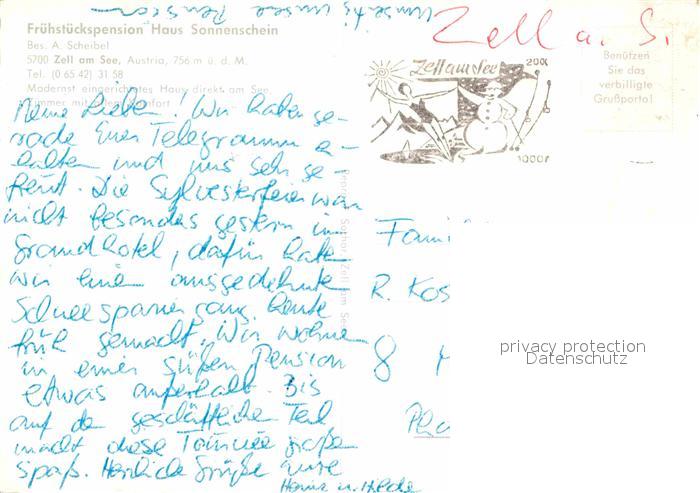 Umseitig unsere Pension
Zell a. S.
Frühstückspension Haus Sonnenschein
Bes. A. Scheibel
5700 Zell am See, Austria, 756 m ü. d. M.
Tel. (0 65 42) 31 58
Modernst eingerichtetes Haus direkt am See.
Zimmer mit Komfort
Zell am See
Benützen
Sie das
verbilligte
Grußporto!
Meine Lieben! Wir haben ge-
rade Euer Telegramm er-
halten und uns sehr ge-
freut. Die Sylvesterfeier war
nicht besonders gestern im
Grandhotel, dafür hatten
wir einen ausgedehnten
Schneespaziergang heute
früh gemacht. Wir wohnen
in einer süßen Pension
etwas außerhalb. Bis
auf den geschäftlichen Teil
macht diese Tournee großen
Spaß. Herzliche Grüße Eure
Heinz u. Hilde
Fami
R. Kos
8
privacy protection
Datenschutz